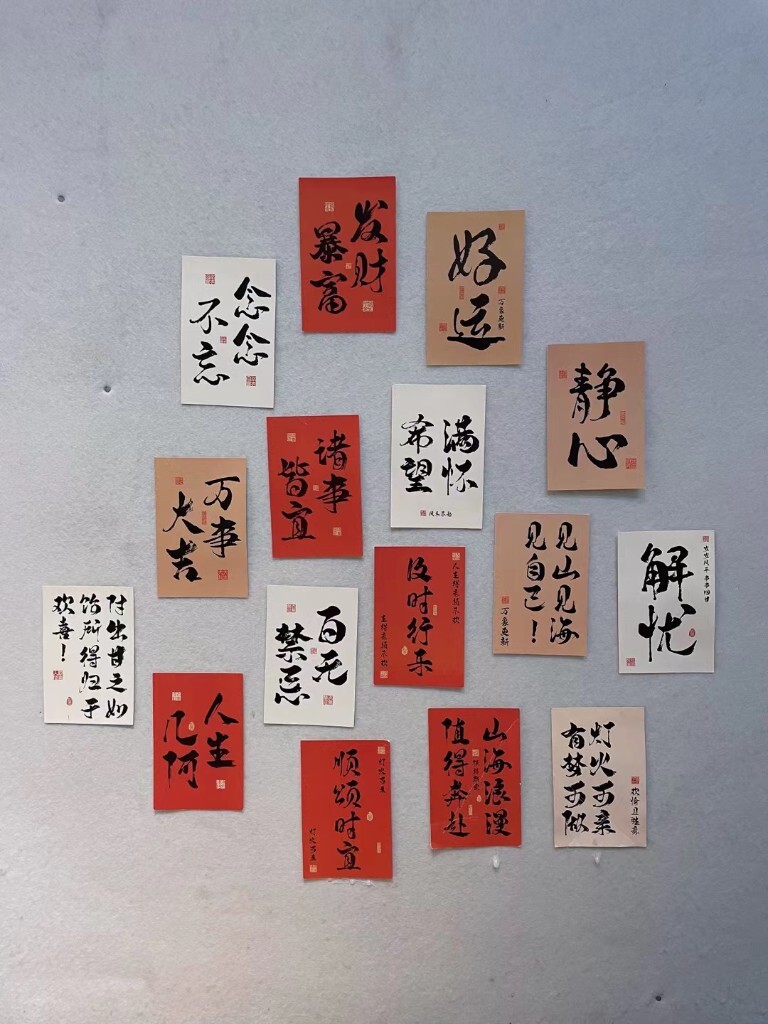 发财
暴富
好运
万象更新
念念
不忘
静心
满怀
希望
诸事
皆宜
万事
大吉
见山见海
见自己！
万象更新
解忧
及时行乐
百无
禁忌
付出甘之如
饴所得归于
欢喜！
人生
几何
顺颂时宜
山海浪漫
值得奔赴
灯火可亲
有梦可做